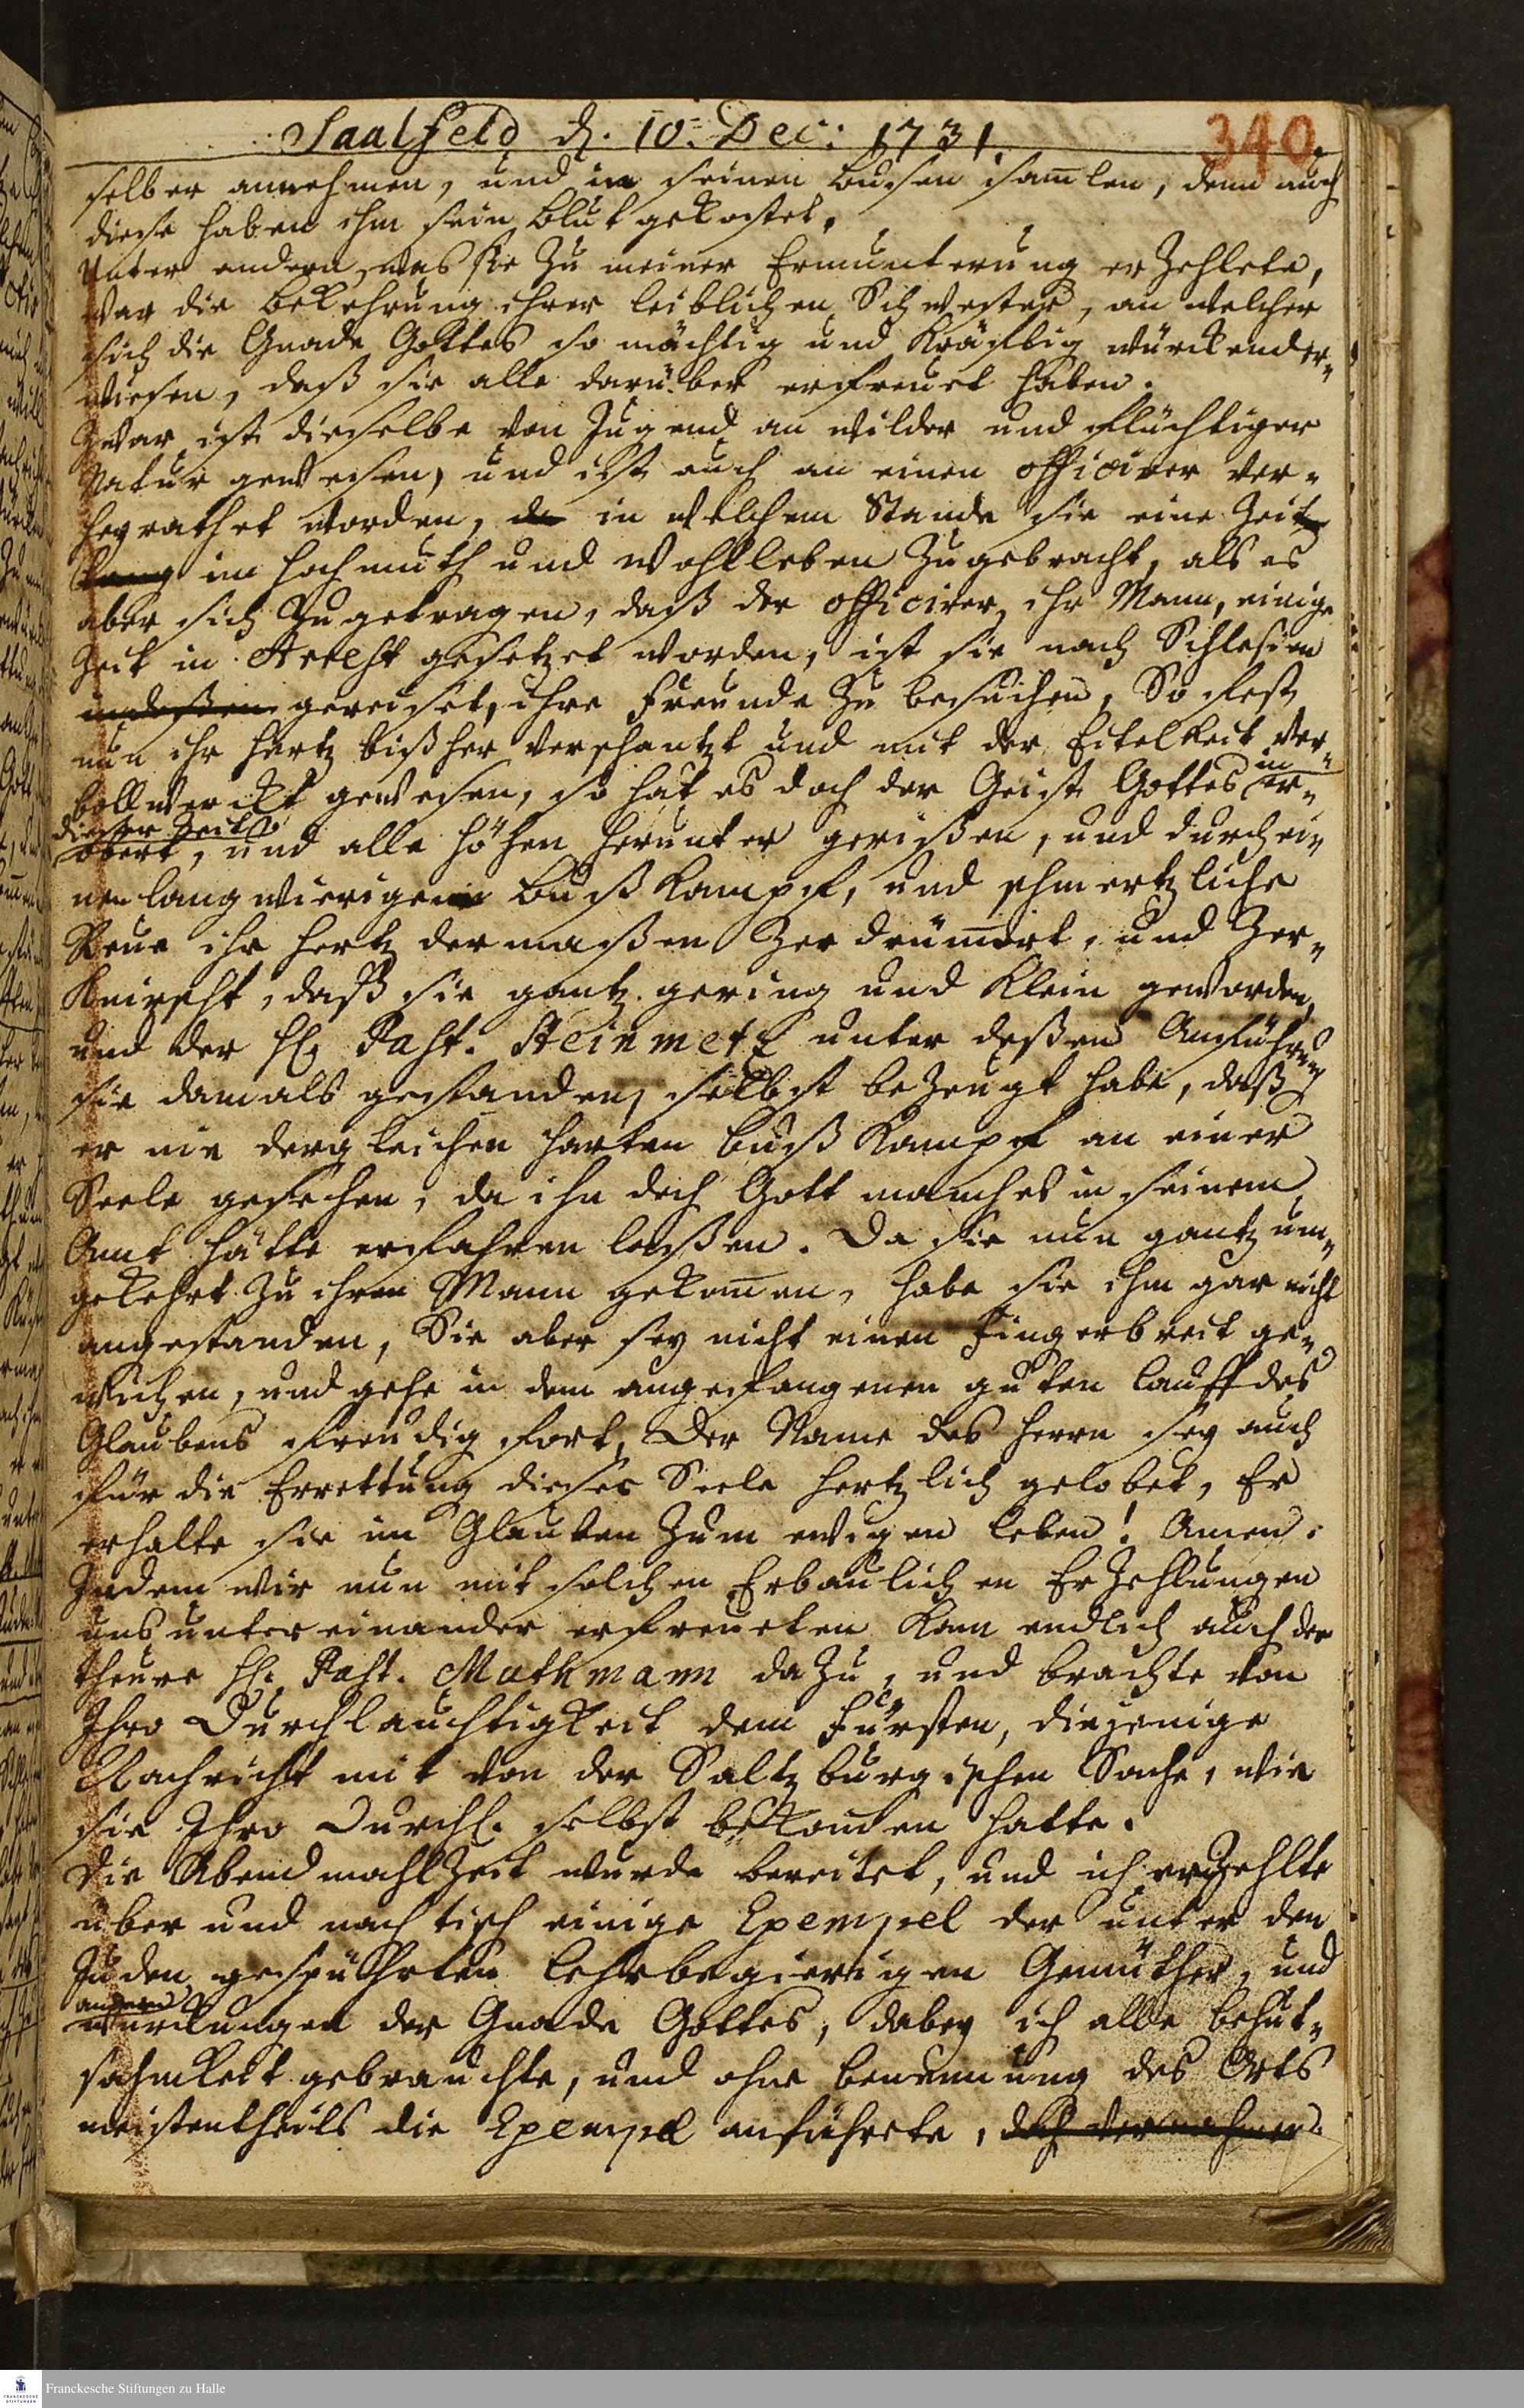 Saalfeld d. 10. Dec: 1731.
340.
selber annehmen, und in seinen Busen samlen, denn auch
diese haben ihm sein Blut gekostet.
Unter andern, was sie zu meiner Ermunterung erzehlete,
war die Bekehrung ihrer leiblichen Schwester, an welcher
sich die Gnade Gottes so mächtig und kräftig würckend er-
wiesen, daß sie alle darüber erfreuet haben.
Zwar ist dieselbe von Jugend an wilder und flüchtiger
Natur gewesen, und ist auch an einen officirer ver-
heyrathet worden, da in welchem Stande sie eine Zeit
lang im Hochmuth und Wohlleben zugebracht, als es
aber sich zugetragen, daß der officirer, ihr Mann, einige
Zeit in Arrest gesetzet worden, ist sie nach Schlesien
indeßen gereiset, ihre Freunde zu besuchen, So fest
nun ihr Hertz bißher verschantzt und mit der Eitelkeit ver-
bollwerckt gewesen, so hat es doch der Geist Gottes in er-
dieser Zeit
obert, und alle Höhen herunter gerißen, und durch ei-
nen langwierigen Bußkampf, und schmertzliche
Reue ihr Hertz dermaßen zerdrümert, und zer-
knirscht, daß sie gantz gering und klein geworden,
und der H. Past. Steinmetz unter deßen Anführung
sie damals gestanden, selbst bezeugt habe, daß
er nie dergleichen harten Bußkampf an einer
Seele gesehen, da ihn doch Gott manches in seinem
Amt hätte erfahren laßen. Da sie nun gantz um-
gekehrt zu ihrem Mann gekomen, habe sie ihm gar nicht
angestanden, Sie aber sey nicht einen Fingerbreit ge-
wichen, und gehe in dem angefangenen guten Lauff des
Glaubens freudig fort, Der Name des Herrn sey auch
für die Errettung dieser Seele hertzlich gelobet, Er
erhalte sie im Glauben zum ewigen Leben! Amen.
Indem wir nun mit solchen Erbaulichen Erzehlungen
uns untereinander erfreueten kam endlich auch der
theure H. Past. Muthmann dazu, und brachte von
Ihro Durchlauchtigkeit dem Fürsten, diejenige
Nachricht mit von der Saltzburgischen Sache, wie
sie Ihro Durchl. selbst bekomen hatte.
Die Abendmahlzeit wurde bereitet, und ich erzehlte
über und nach tisch einige Exempel der unter den
Juden gespührten lehrbegierigen Gemüther, und
andern
würckungen der Gnade Gottes, dabey ich alle behut-
sahmkeit gebrauchte, und ohne benennung des Orts
meistentheils die Exempel anführete, doch vernahmen
Franckesche Stiftungen zu Halle